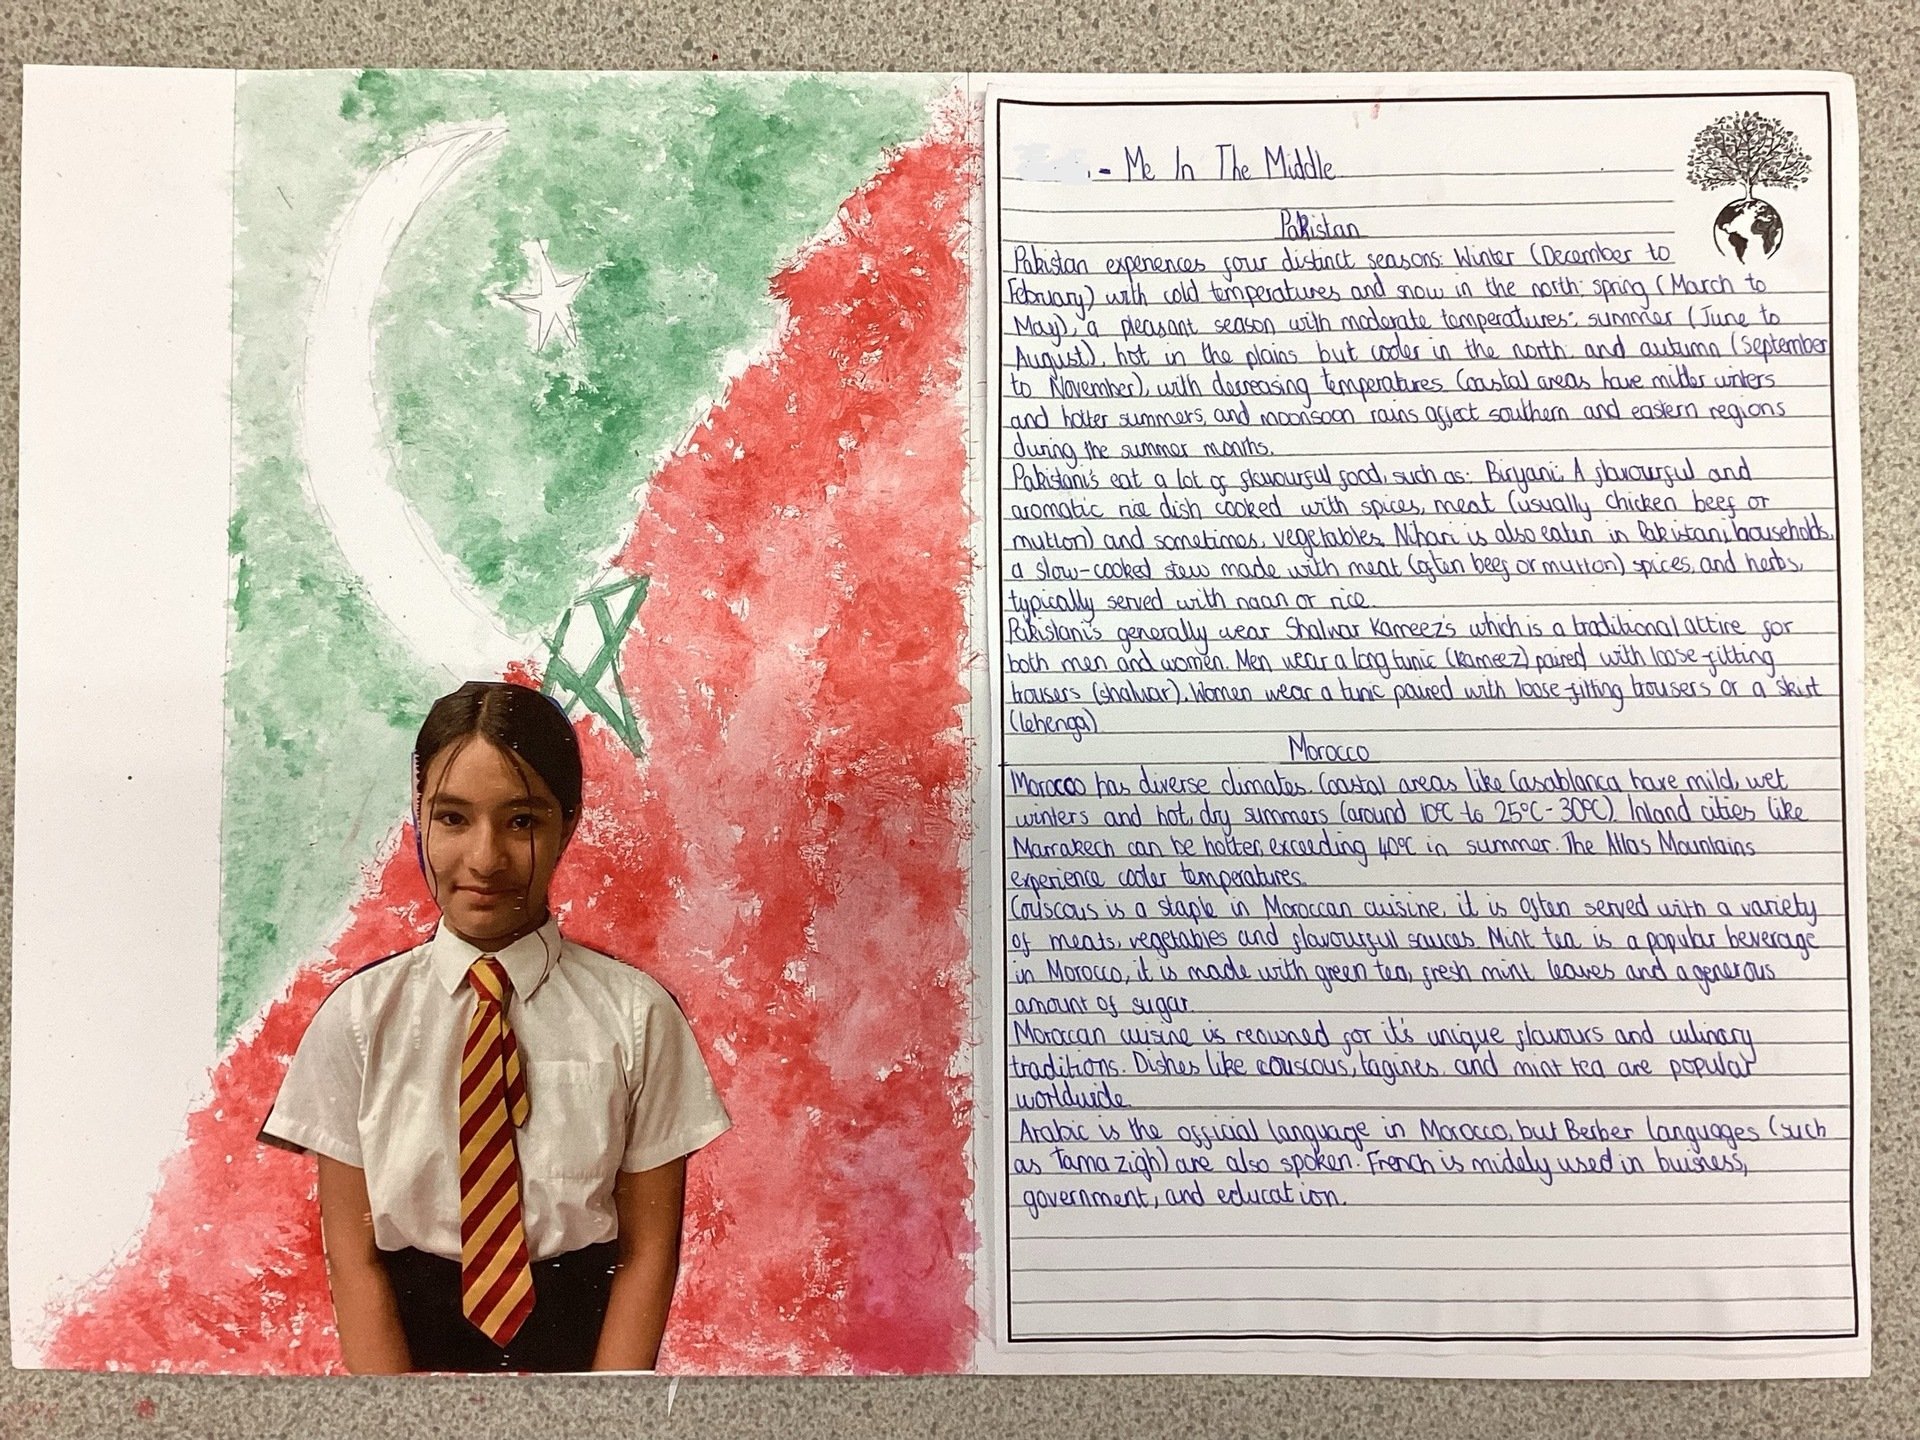 - Me In The Middle
Pakistan
Pakistan experiences four distinct seasons: Winter (December to
February) with cold temperatures and snow in the north: spring (March to
May), a pleasant season with moderate temperatures; summer (June to
August), hot in the plains but cooler in the north: and autumn (September
to November), with decreasing temperatures. Coastal areas have milder winters
and hotter summers, and moonsoon rains affect southern and eastern regions
during the summer months.
Pakistani's eat a lot of flavourful food, such as: Biryani. A flavourful and
aromatic rice dish cooked with spices, meat (usually chicken beef or
mutton) and sometimes, vegetables. Nihari is also eaten in Pakistani households,
a slow-cooked stew made with meat (often beef or mutton) spices, and herbs,
typically served with naan or rice.
Pakistani's generally wear Shalwar Kameez's which is a traditional attire for
both men and women. Men wear a long tunic (kameez) paired with loose-fitting
trousers (shalwar). Women wear a tunic paired with loose-fitting trousers or a skirt
(lehenga)
Morocco
Morocco has diverse climates. Coastal areas like Casablanca have mild, wet
winters and hot, dry summers (around 10°C to 25°C - 30°C). Inland cities like
Marrakech can be hotter, exceeding 40°C in summer. The Atlas Mountains
experience cooler temperatures.
Couscous is a staple in Moroccan cuisine, it is often served with a variety
of meats, vegetables and flavourful sauces. Mint tea is a popular beverage
in Morocco, it is made with green tea, fresh mint leaves and a generous
amount of sugar.
Moroccan cuisine is reowned for it's unique flavours and culinary
traditions. Dishes like couscous, tagines, and mint tea are popular
worldwide.
Arabic is the official language in Morocco, but Berber languages (such
as Tamazigh) are also spoken. French is widely used in buisness,
government, and education.